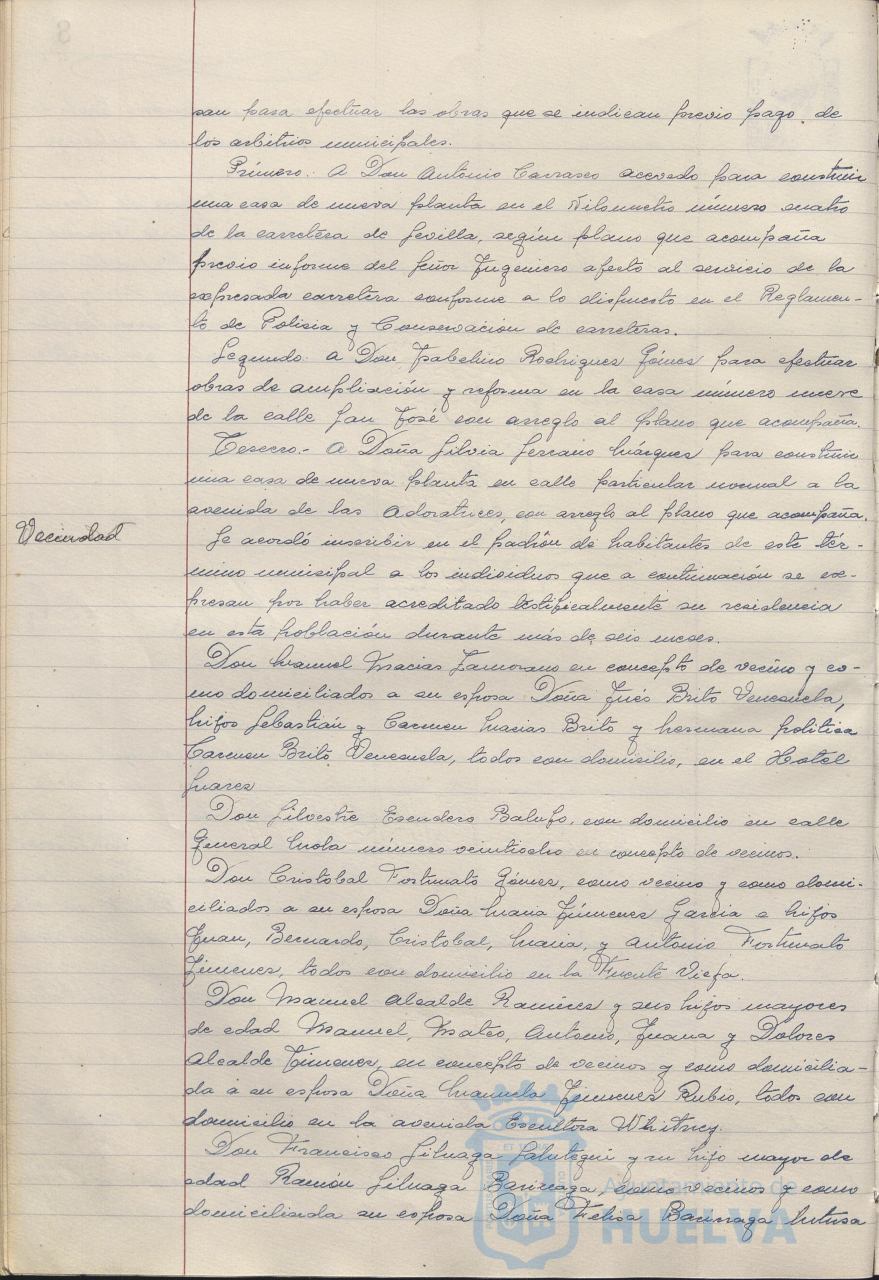 san para efectuar las obras que se indican previo pago de
los arbitrios municipales.
Primero.- A Don Antonio Carrasco Acevedo para construir
una casa de nueva planta en el Kilometro número cuatro
de la carretera de Sevilla, según plano que acompaña
previo informe del Señor Ingeniero afecto al servicio de la
expresada carretera conforme a lo dispuesto en el Reglamen-
to de Policia y Conservacion de carreteras.
Segundo. A Don Isabelino Rodrigues Gómes para efectuar
obras de ampliación y reforma en la casa número nueve
de la calle San José con arreglo al plano que acompaña.
Tercero.- A Doña Silvia Serrano Márques para construir
una casa de nueva planta en calle particular normal a la
avenida de las Adoratrices, con arreglo al plano que acompaña.
Vecindad
Se acordó inscribir en el padrón de habitantes de este tér-
mino municipal a los individuos que a continuación se ex-
presan por haber acreditado testificalmente su residencia
en esta población durante más de seis meses.
Don Manuel Macias Zamorano en concepto de vecino y co-
mo domiciliados a su esposa Doña Inés Brito Venesuela,
hijos Sebastián y Carmen Macias Brito y hermana politica
Carmen Brito Venesuela, todos con domicilio, en el Hotel
Suares
Don Silvestre Escudero Balufo, con domicilio en calle
General Mola número veintiocho en concepto de vecinos.
Don Cristobal Fortunato Gómes, como vecino y como domi-
ciliados a su esposa Doña Maria Jimenes Garcia e hijos
Juan, Bernardo, Cristobal, Maria, y Antonio Fortunato
Jimenes, todos con domicilio en la Fuente Vieja.
Don Manuel Alcalde Ramires y sus hijos mayores
de edad Manuel, Mateo, Antonio, Juana y Dolores
Alcalde Jimenes, en concepto de vecinos y como domicilia-
da a su esposa Doña Manuela Jimenes Rubio, todos con
domicilio en la avenida Escultora Whitney.
Don Francisco Siluaga y su hijo mayor de
edad Ramón Siluaga Barinaga, como vecinos y como
domiciliada su esposa Doña Felisa Barinaga
Ayuntamiento de
HUELVA